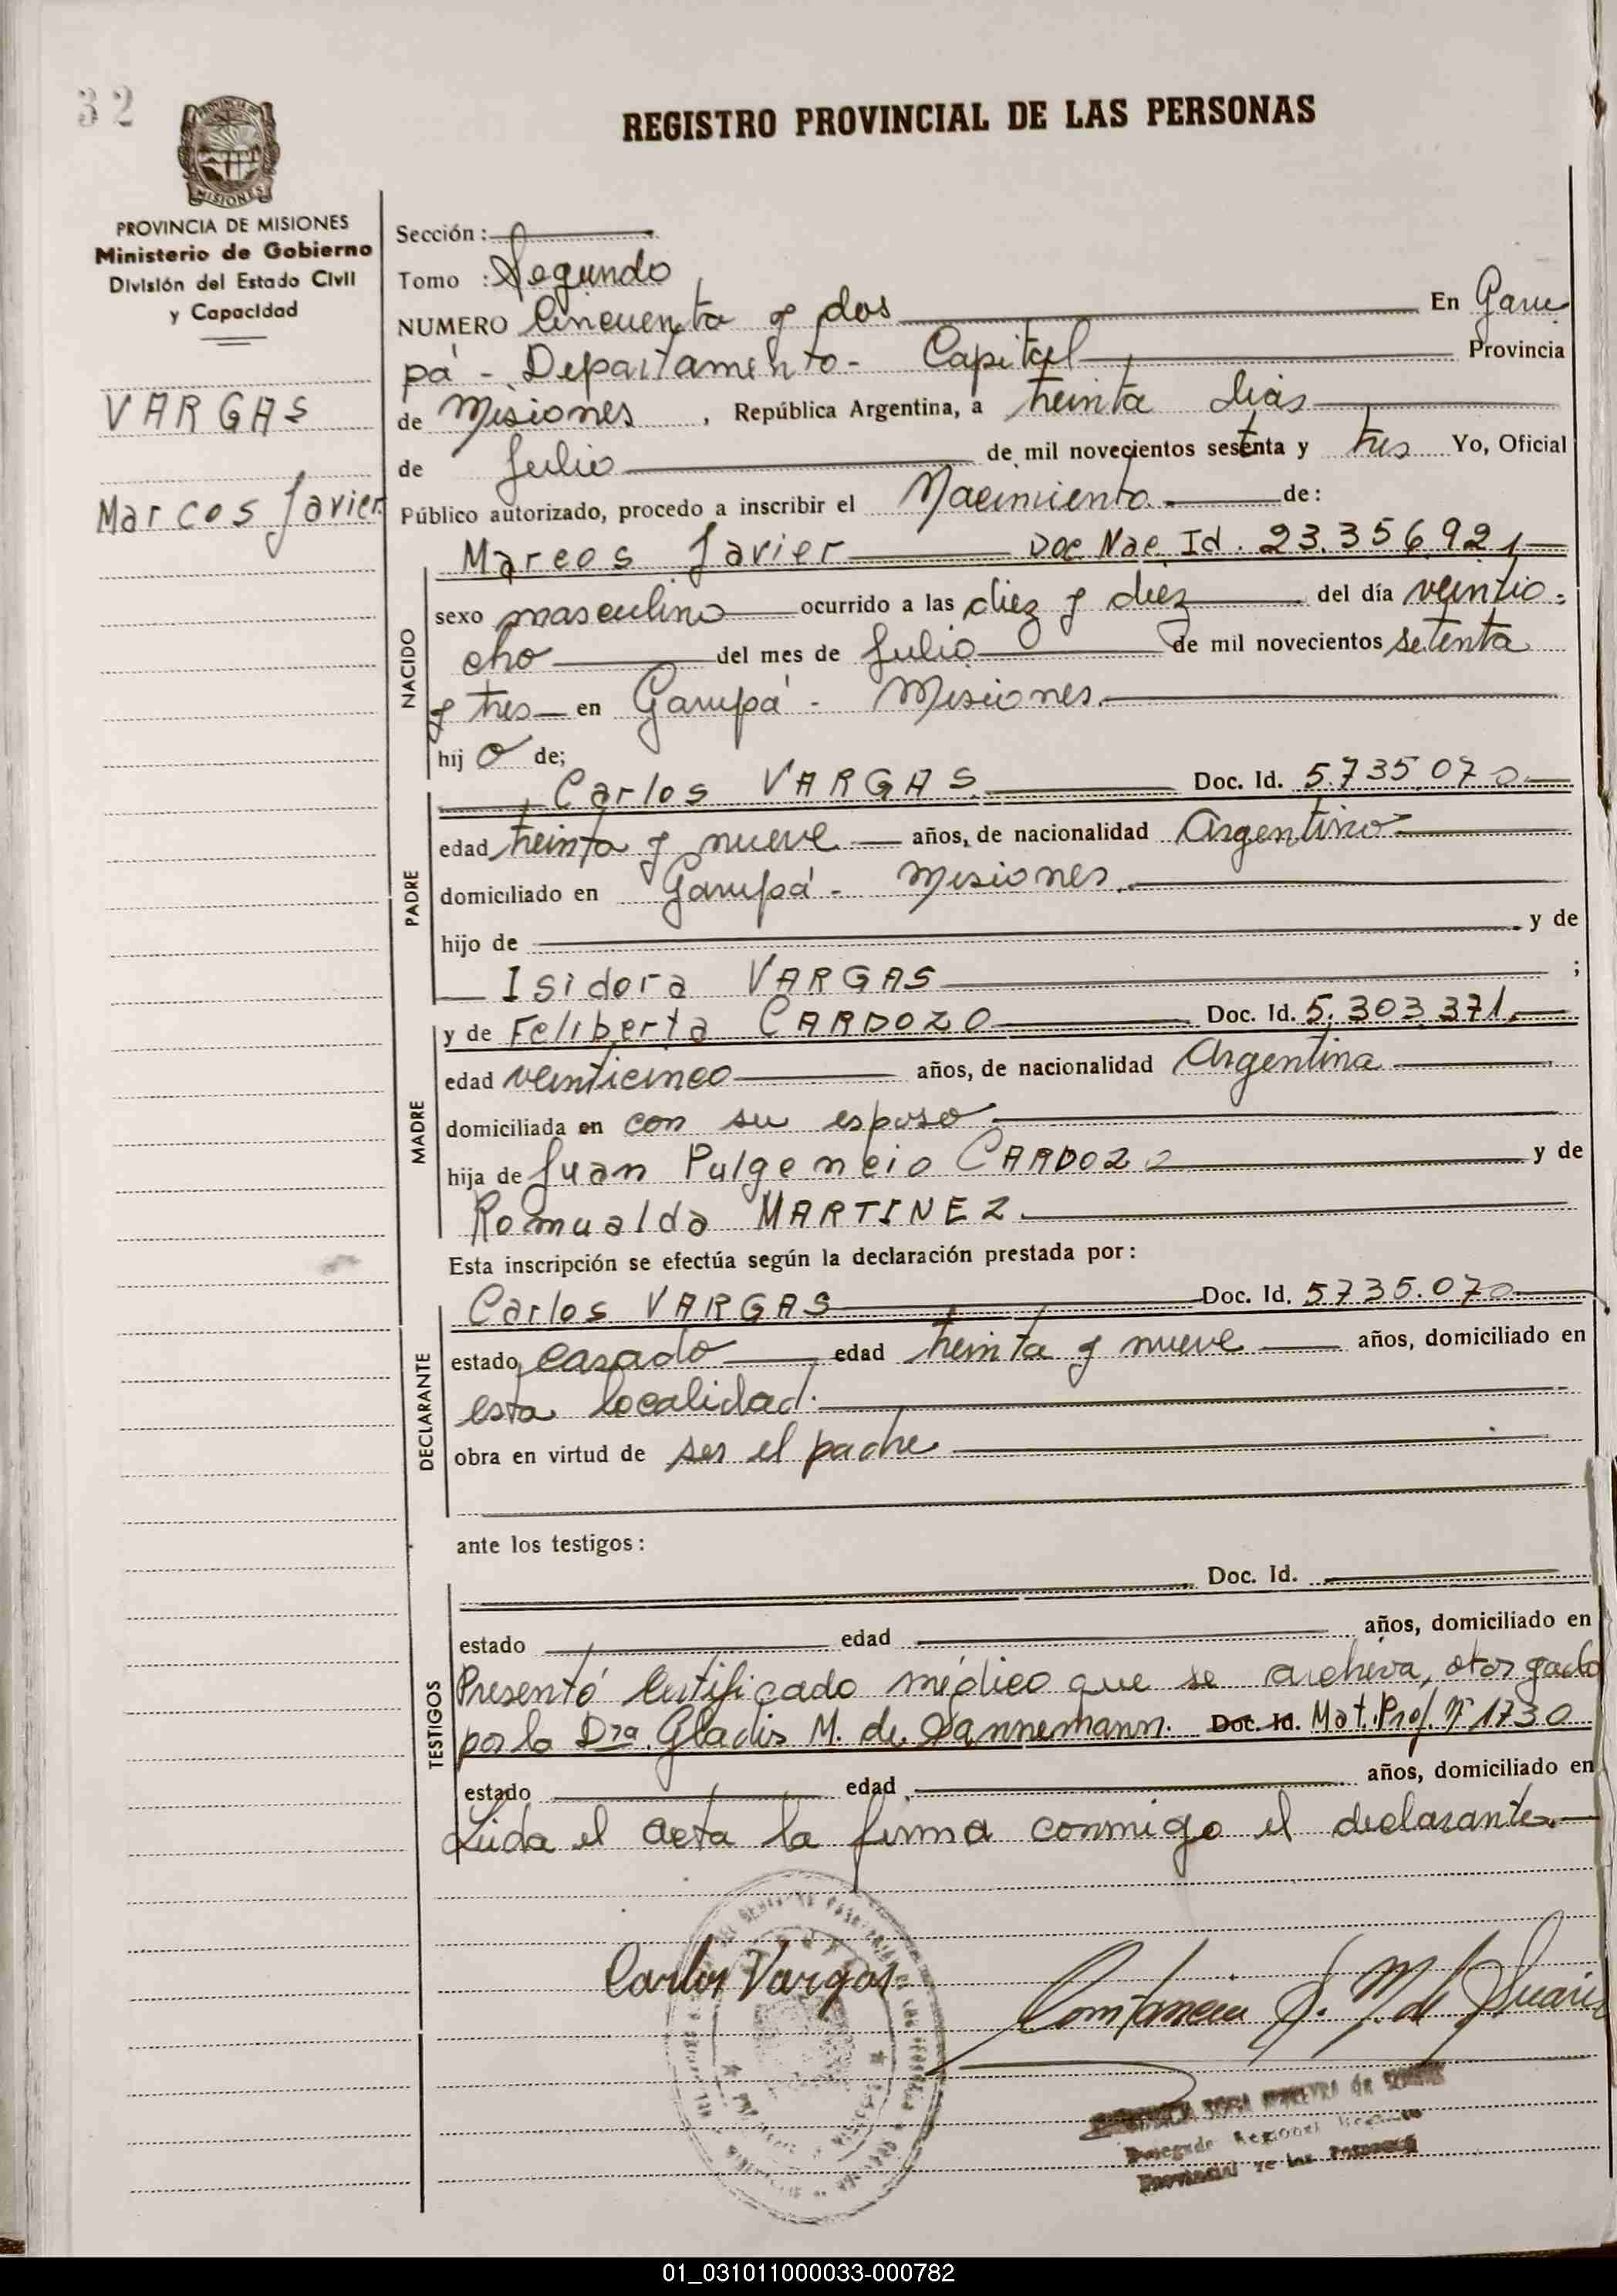 32
REGISTRO PROVINCIAL DE LAS PERSONAS
MISIONES
PROVINCIA DE MISIONES
Ministerio de Gobierno
División del Estado Civil
y Capacidad
VARGAS
Marcos Javier
Sección :
Tomo : Segundo
NUMERO Cincuenta y dos En Garu
pá - Departamento - Capital Provincia
de Misiones , República Argentina, a treinta dias
de Julio de mil novecientos setenta y tres Yo, Oficial
Público autorizado, procedo a inscribir el Nacimiento de:
Marcos Javier Doc Nac Id. 23.356.921
NACIDO
sexo masculino ocurrido a las diez y diez del día veintio-
cho del mes de Julio de mil novecientos setenta
y tres en Garupá - Misiones.
hij o de;
PADRE
Carlos VARGAS Doc. Id. 5.735.070
edad treinta y nueve años, de nacionalidad Argentino
domiciliado en Garupá - Misiones.
hijo de y de
Isidora VARGAS ;
MADRE
y de Feliberta CARDOZO Doc. Id. 5.303.371.
edad veinticinco años, de nacionalidad Argentina
domiciliada en con su esposo
hija de Juan Pulgencio CARDOZO y de
Romualda MARTINEZ.
Esta inscripción se efectúa según la declaración prestada por:
DECLARANTE
Carlos VARGAS Doc. Id. 5735.070
estado casado edad treinta y nueve años, domiciliado en
esta localidad.
obra en virtud de ser el padre
ante los testigos:
TESTIGOS
Doc. Id.
estado edad años, domiciliado en
Presentó Certificado médico que se archiva, otorgado
por la Dra. Gladis M. de Dannemann. Doc. Id. Mat. Prof. Nº 1730
estado edad años, domiciliado en
Leida el acta la firma conmigo el declarante.
Carlos Vargas
de
Delegada Regional Registro
Provincial de las Personas
01_031011000033-000782